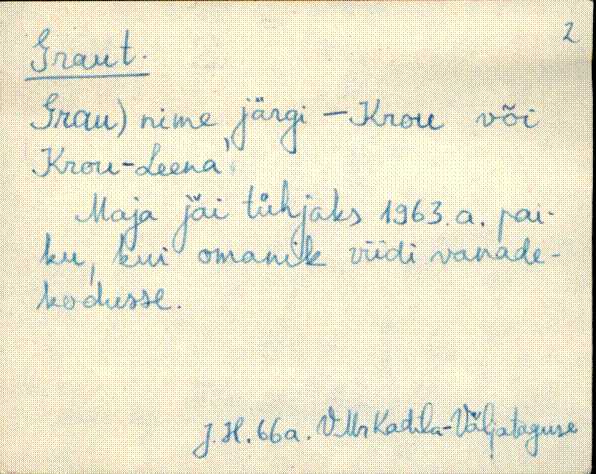 2
Graut.
Grau) nime järgi – Krou või
Krou-Leena.
Maja jäi tühjaks 1963.a. pai-
ku, kui omanik viidi vanade-
kodusse.
J.H. 66a. V.Mr Kadila-Väljataguse